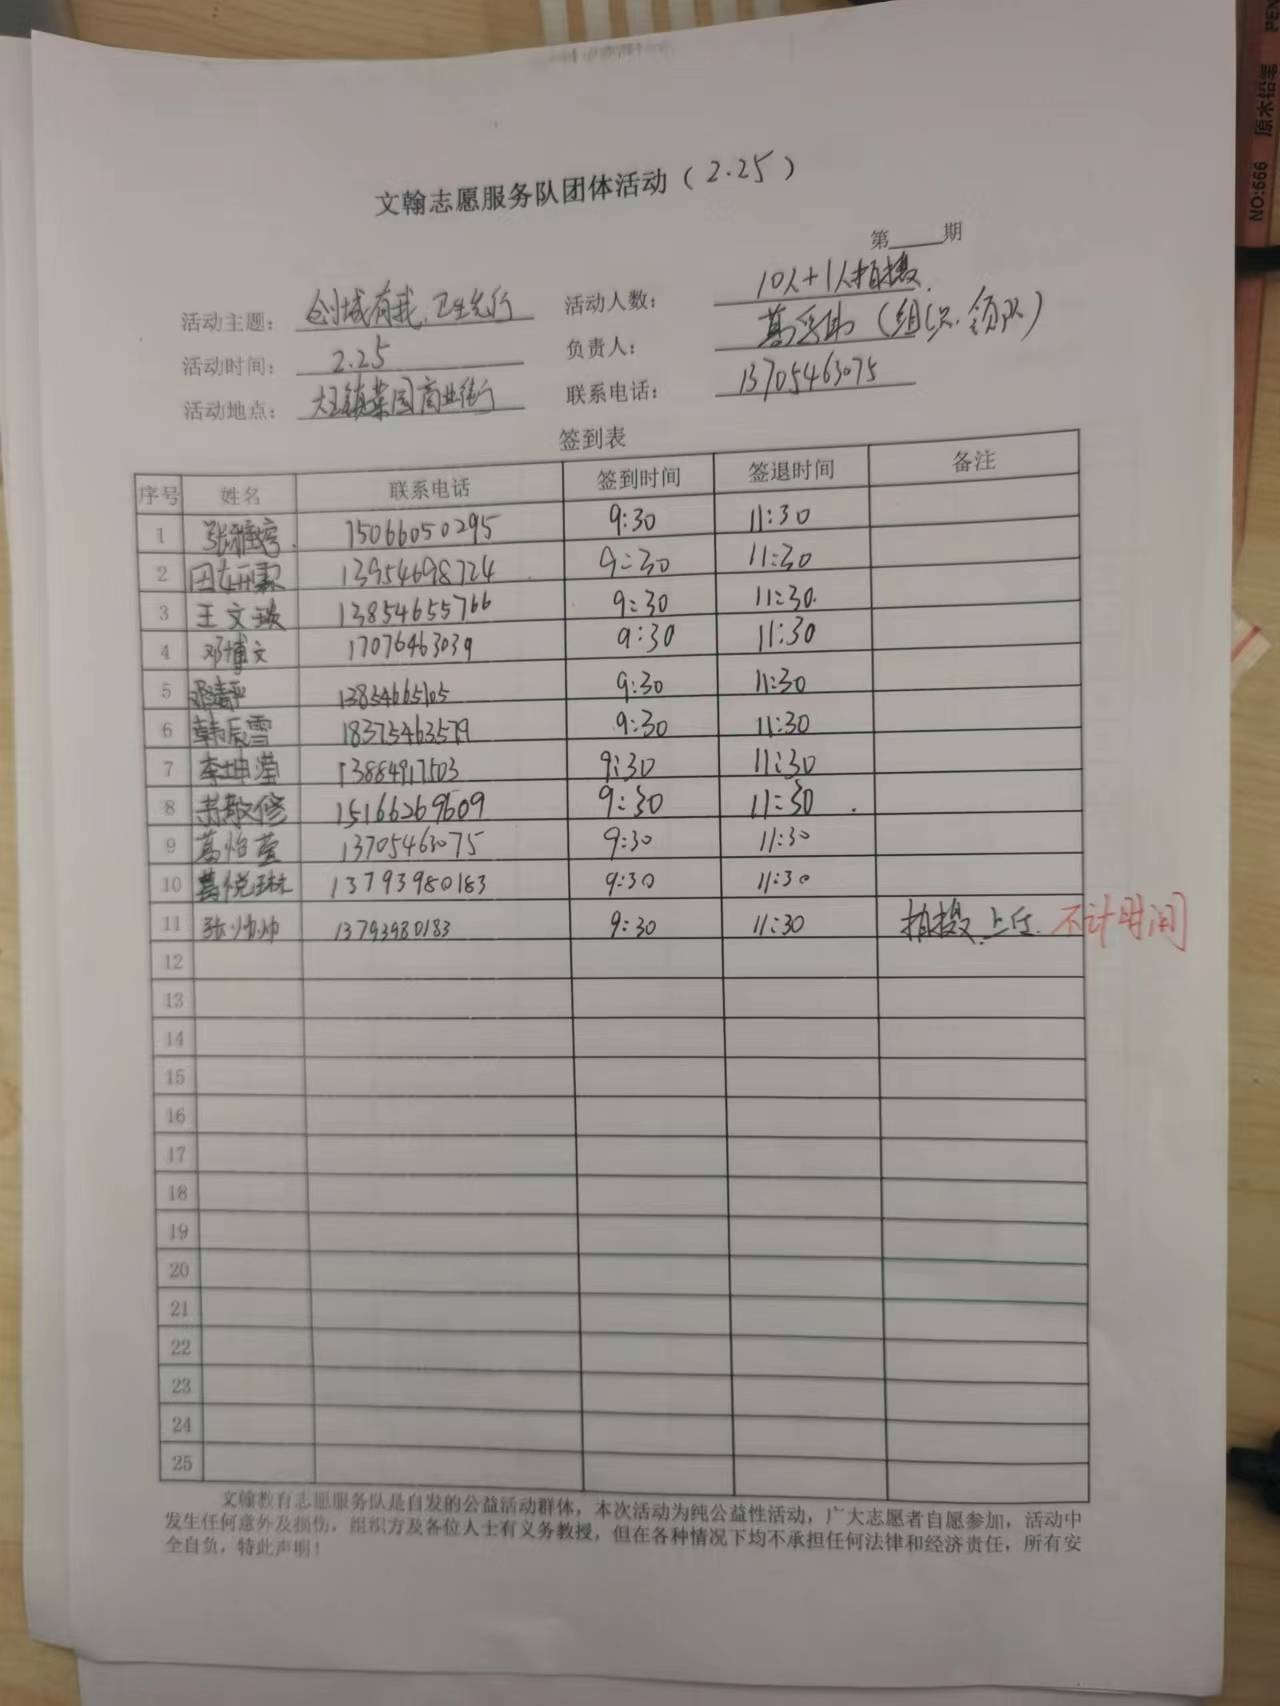 文翰志愿服务队团体活动（2.25）
第____期
活动主题： 创城有我，卫生先行 活动人数： 10人+1人拍摄
活动时间： 2.25 负责人： （组织、领队）
活动地点： 大王镇菜园商业街 联系电话： 13705463075
签到表
序号 姓名 联系电话 签到时间 签退时间 备注
1 张雅 15066050295 9:30 11:30
2 田妍霖 13954698724 9:30 11:30
3 王文琰 13854655766 9:30 11:30
4 邓博文 17076463039 9:30 11:30
5 邓静 13854665105 9:30 11:30
6 韩辰雪 18375463579 9:30 11:30
7 李坤滢 13884917503 9:30 11:30
8 敬修 15166269609 9:30 11:30
9 葛怡萱 13705463075 9:30 11:30
10 葛悦琳 13793980183 9:30 11:30
11 张帅帅 13793980183 9:30 11:30 拍摄、上传 不计时间
12
13
14
15
16
17
18
19
20
21
22
23
24
25
文翰教育志愿服务队是自发的公益活动群体，本次活动为纯公益性活动，广大志愿者自愿参加，活动中
发生任何意外及损伤，组织方及各位人士有义务教授，但在各种情况下均不承担任何法律和经济责任，所有安
全自负，特此声明！
NO:666 原木铅笔 PEN